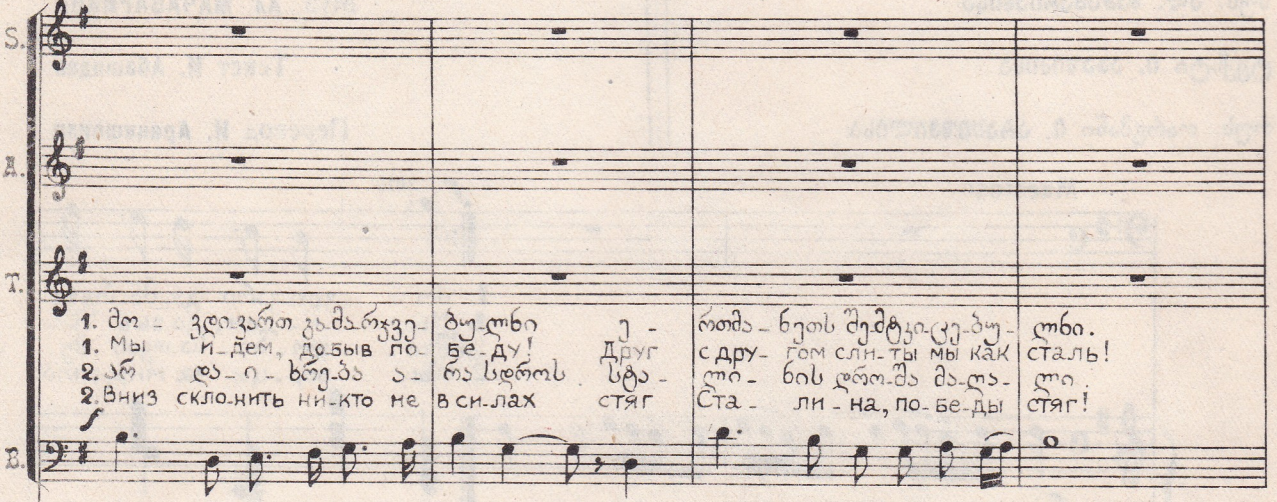 S.
A.
T.
1. მო - ვდივართ გა-მა-რჯვე- ბუ-ლნი ე - რთმა - ნეთს შე-მტკი-ცე-ბუ- ლნი.
1. Мы и-дем, до-быв по- бе-ду! Друг с дру- гом сли-ты мы как сталь!
2. არ და-ი - ხრე-ბა ა - რასდროს სტა - ლი - ნის დრო-შა მა-ღა- ლი
2. Вниз скло-нить ни-кто не в си-лах стяг Ста - ли - на, по-бе-ды стяг!
f
B.